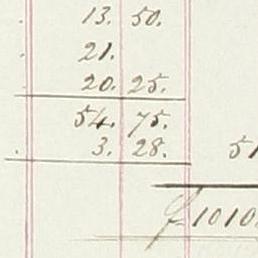 13. 50.
21.
20. 25.
54. 75.
3. 28. 51
f 1010.